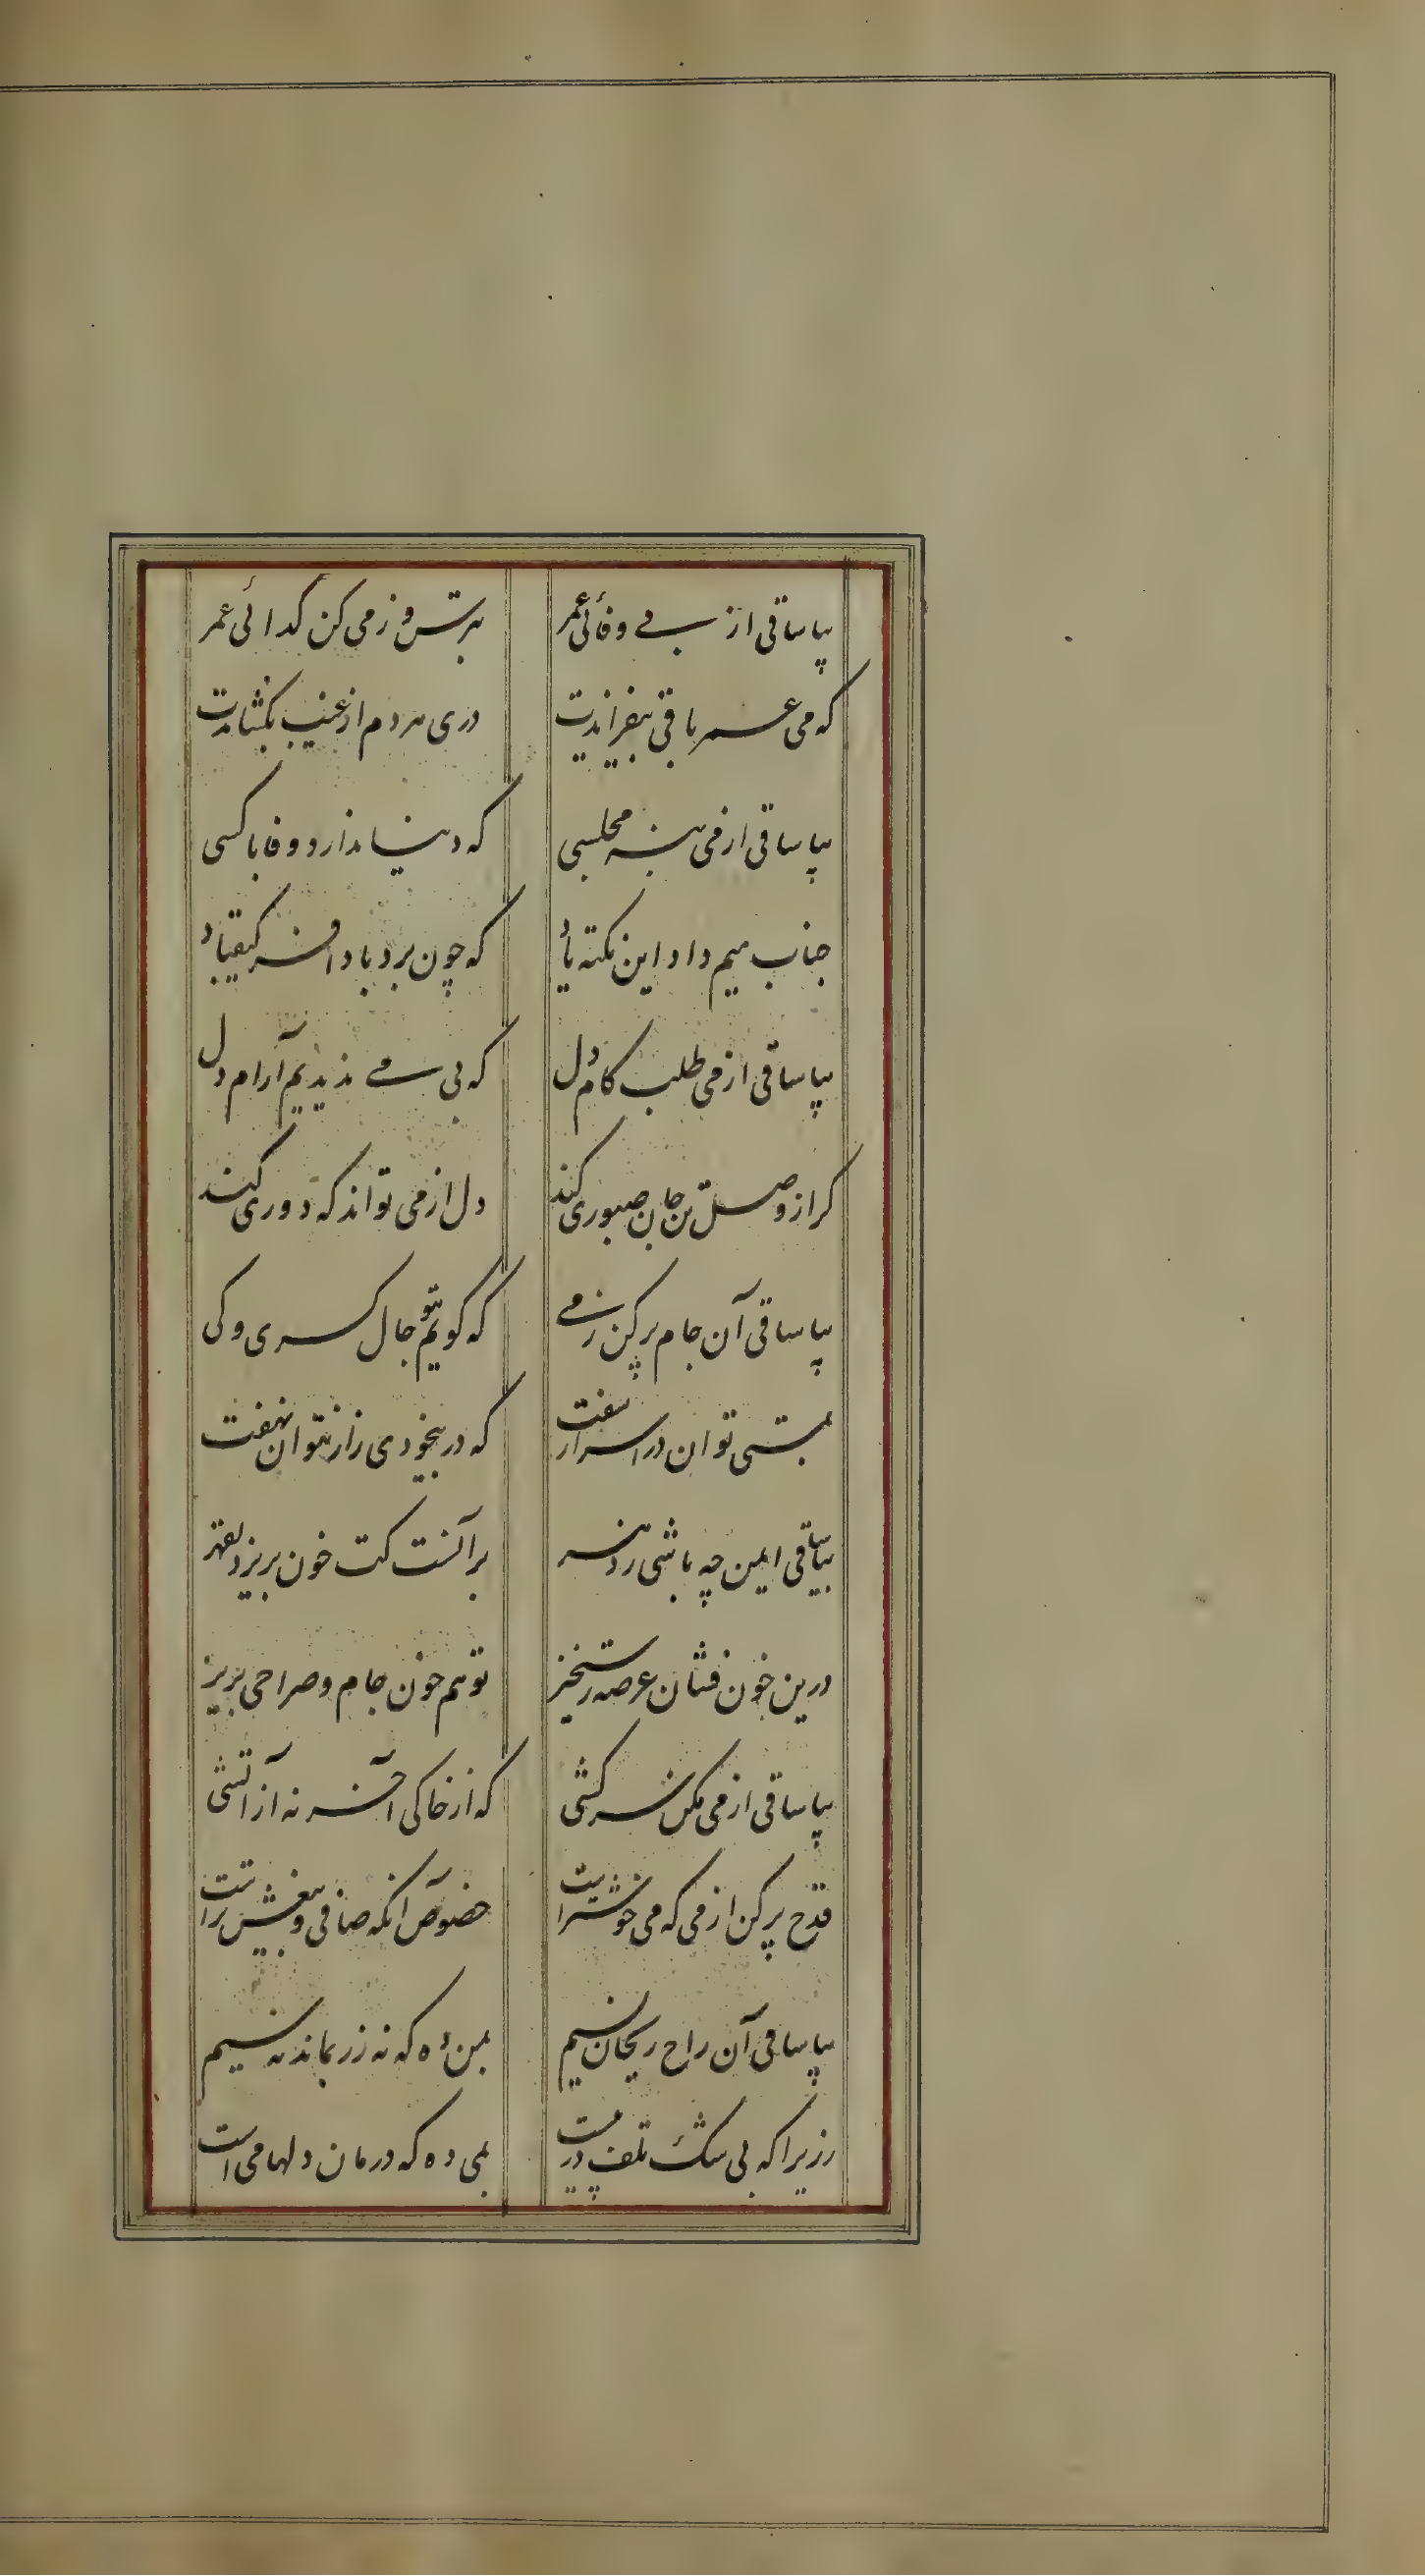 بیا ساقی از بی وفائی عمر
بترس و زمی کن گدائی عمر
که می عمر باقی بیفزایدت
دری هردم از غیب بگشایدت
بیا ساقی از می بنه مجلسی
که دنیا ندارد وفا با کسی
حباب میم داد این نکته یاد
که چون برد باد افسر کیقباد
بیا ساقی از می طلب کام دل
که بی می ندیدیم آرام دل
گر از وصل تن جان صبوری کند
دل از می تواند که دوری کند
بیا ساقی آن جام پر کن زمی
که گویم بتو حال کسری و کی
بمستی توان در اسرار سفت
که در بیخودی راز نتوان نهفت
بیا ساقی ایمن چه باشی ز دهر
بر آنست کت خون بریزد بقهر
درین خون فشان عرصه رستخیز
تو هم خون جام و صراحی بریز
بیا ساقی از می مکن سرکشی
که از خاکی آخر نه از آتشی
قدح پر کن از می که می خوشتر است
خصوص آنکه صافی و بیغش تر است
بیا ساقی آن راح ریحان نسیم
بمن ده که نه زر بماند نه سیم
زیرا که بی شک تلف در
بمی ده که درمان دلها می است